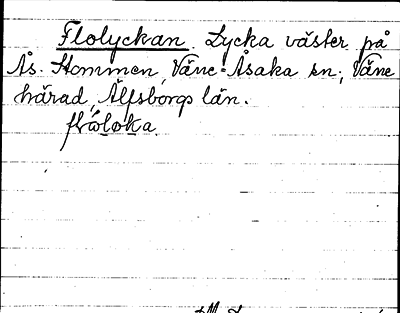 Flolyckan. Lycka väster på
Ås. Stommen, Väne-Åsaka sn; Väne
härad, Älfsborgs län.